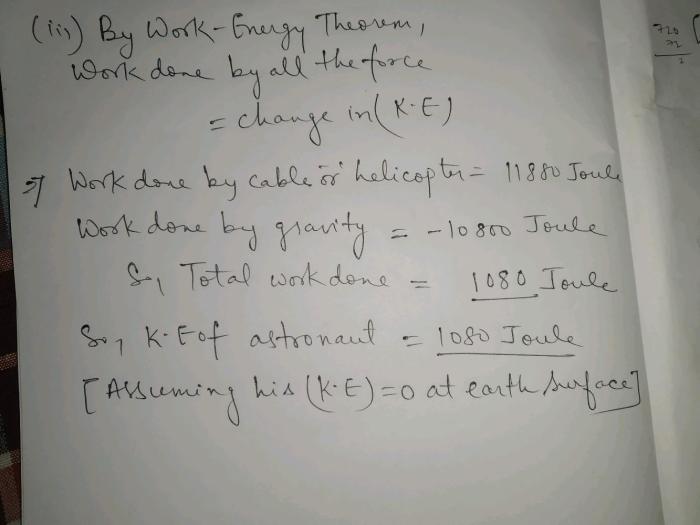 (iii) By Work-Energy Theorem,
Work done by all the force
= change in (K.E)
⇒ Work done by cable or helicopter = 11880 Joule
Work done by gravity = -10800 Joule
So, Total work done = 1080 Joule
So, K.E of astronaut = 1080 Joule
[Assuming his (K.E)=0 at earth surface]
720
72